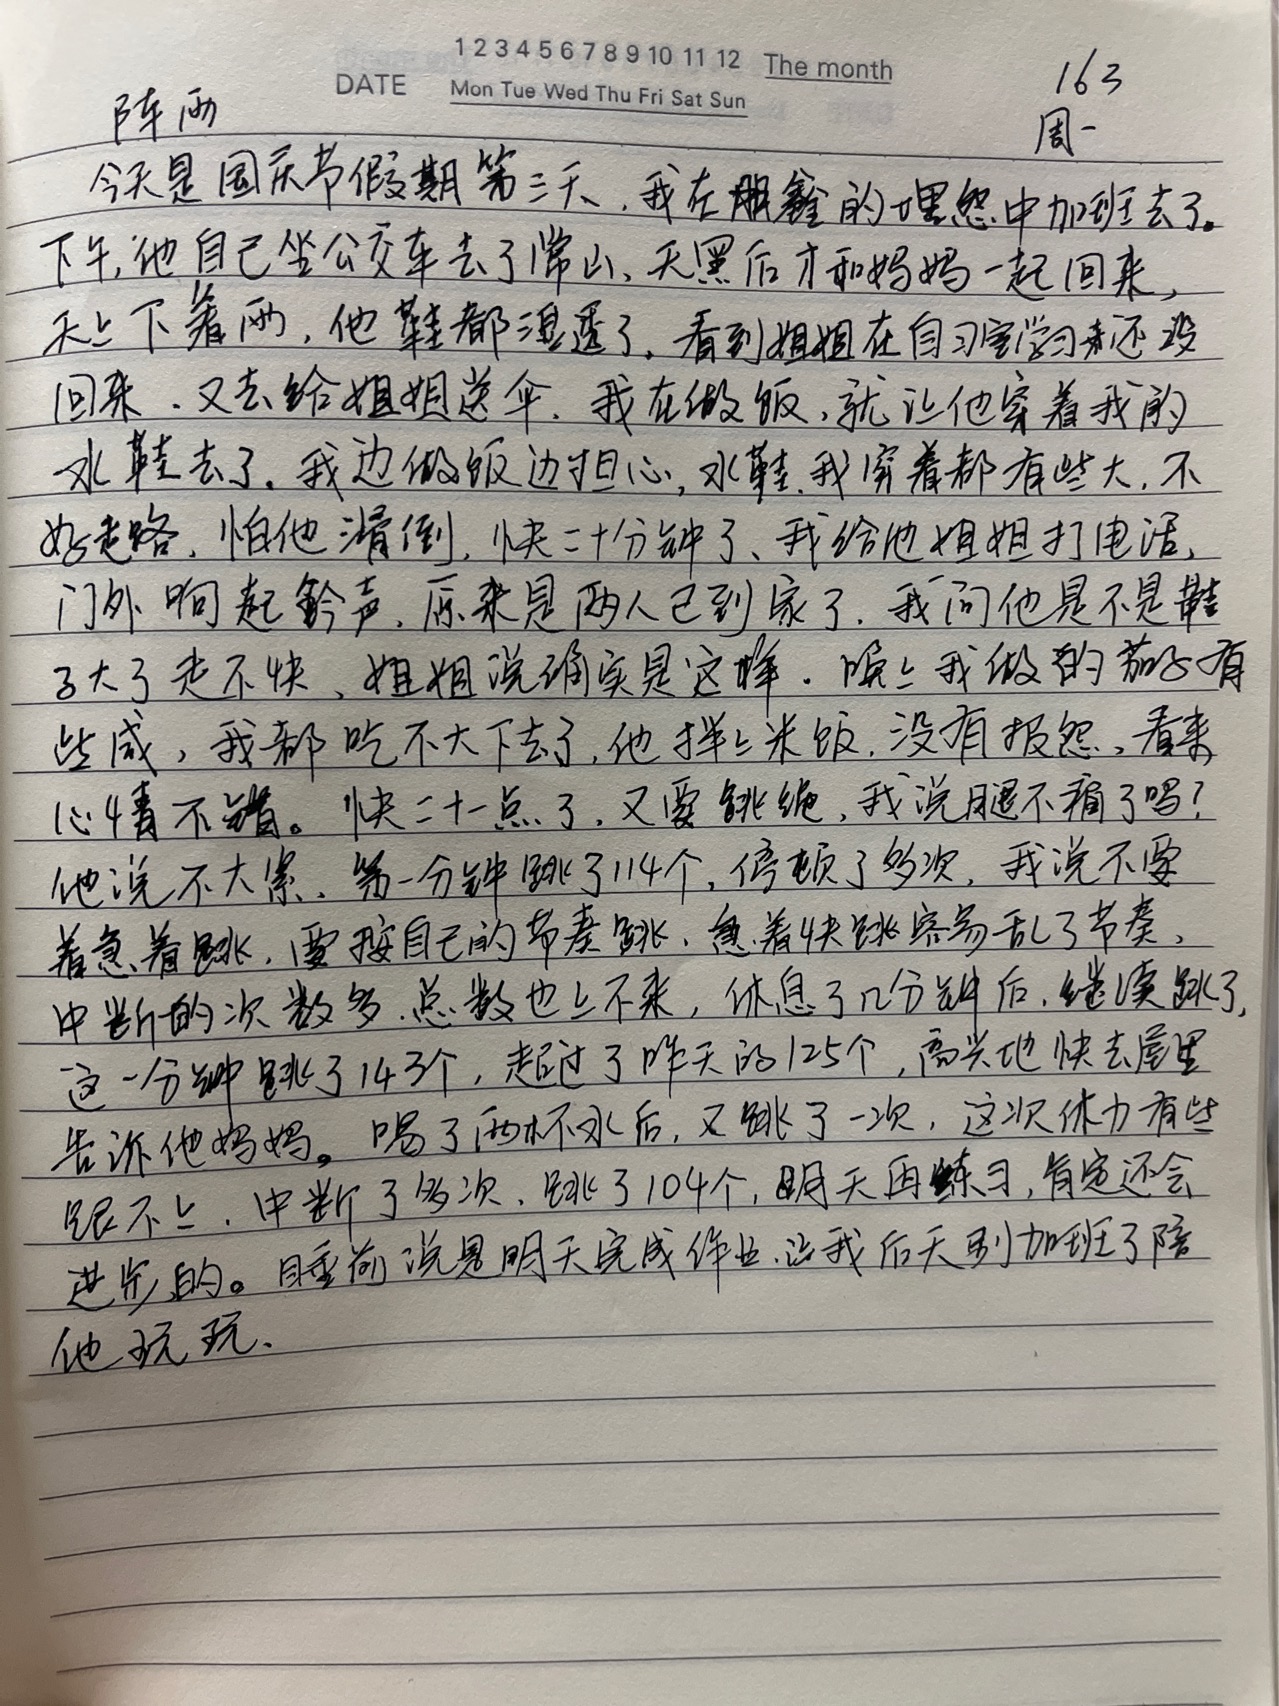 1 2 3 4 5 6 7 8 9 10 11 12 The month
DATE Mon Tue Wed Thu Fri Sat Sun
163
阵雨 周一
今天是国庆节假期第三天，我在朋鑫的埋怨中加班去了。
下午，他自己坐公交车去了常山、天黑后才和妈妈一起回来，
天上下着雨，他鞋都湿透了。看到姐姐在自习室学习还没
回来．又去给姐姐送伞．我在做饭，就让他穿着我的
水鞋去了。我边做饭边担心，水鞋、我穿着都有些大，不
好走路，怕他滑倒，快二十分钟了、我给他姐姐打电话，
门外响起铃声，原来是两人已到家了．我问他是不是鞋
子大了走不快、姐姐说确实是这样．晚上我做的茄子有
些咸，我都吃不大下去了，他拌上米饭，没有报怨，看来
心情不错。快二十一点了，又要跳绳，我说腿不痛了吗？
他说不大累、第一分钟跳了114个，停顿了多次，我说不要
着急着跳，要按自己的节奏跳，急着快跳容易乱了节奏，
中断的次数多，总数也上不来，休息了几分钟后，继续跳了，
这一分钟跳了143个，超过了昨天的125个，高兴地快去屋里
告诉他妈妈。喝了两杯水后，又跳了一次，这次体力有些
跟不上，中断了多次，跳了104个，明天再练习，肯定还会
进步的。睡前说是明天完成作业，让我后天别加班了陪
他玩玩、